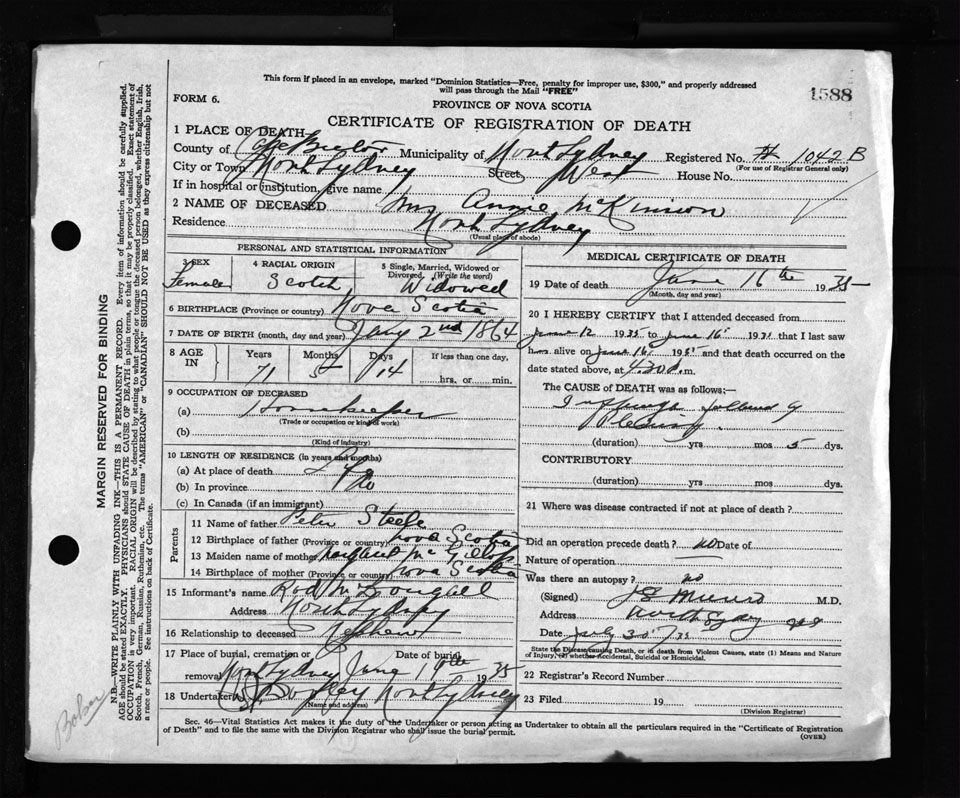 This form if placed in an envelope, marked "Dominion Statistics—Free, penalty for improper use, $300," and properly addressed
will pass through the Mail "FREE"
1588
FORM 6.
PROVINCE OF NOVA SCOTIA
CERTIFICATE OF REGISTRATION OF DEATH
1 PLACE OF DEATH
County of Cape Breton Municipality of North Sydney Registered No. 1042 B
(For use of Registrar General only)
City or Town North Sydney Street, West House No.
If in hospital or institution, give name
2 NAME OF DECEASED Mrs Annie McKinnon
Residence North Sydney
(Usual place of abode)
PERSONAL AND STATISTICAL INFORMATION
3 SEX
Female
4 RACIAL ORIGIN
Scotch
5 Single, Married, Widowed or
Divorced. (Write the word)
Widowed
6 BIRTHPLACE (Province or country) Nova Scotia
7 DATE OF BIRTH (month, day and year) Jany 2nd 1864
8 AGE
IN
Years
71
Months
5
Days
14
If less than one day,
hrs. or min.
9 OCCUPATION OF DECEASED
(a) Housekeeper
(Trade or occupation or kind of work)
(b)
(Kind of industry)
10 LENGTH OF RESIDENCE (in years and months)
(a) At place of death Life
(b) In province Do
(c) In Canada (if an immigrant)
Parents
11 Name of father Peter Steele
12 Birthplace of father (Province or country) Nova Scotia
13 Maiden name of mother Margaret
14 Birthplace of mother (Province or country) Nova Scotia
15 Informant's name Rod McDougall
Address North Sydney
16 Relationship to deceased Nephew
17 Place of burial, cremation or removal Date of burial
North Sydney June 1935
18 Undertaker North Sydney
(Name and address)
MEDICAL CERTIFICATE OF DEATH
19 Date of death June 16th 1935
(Month, day and year)
20 I HEREBY CERTIFY that I attended deceased from
June 12 1935 to June 16 193 that I last saw
h alive on June 16 193 and that death occurred on
date stated above, at 4.30 m.
The CAUSE of DEATH was as follows:—
followed by
Pleurisy
(duration) yrs mos 5 dys.
CONTRIBUTORY
(duration) yrs mos dys.
21 Where was disease contracted if not at place of death?
Did an operation precede death? no Date of
Nature of operation
Was there an autopsy? no
(Signed) Munro M.D.
Address North Sydney NS
Date July 30 / 35
State the Disease causing Death, or in death from Violent Causes, state (1) Means and Nature
of Injury, (2) whether Accidental, Suicidal or Homicidal.
22 Registrar's Record Number
23 Filed 19
(Division Registrar)
Sec. 46—Vital Statistics Act makes it the duty of the Undertaker or person acting as Undertaker to obtain all the particulars required in the "Certificate of Registration
of Death" and to file the same with the Division Registrar who shall issue the burial permit.
(OVER)
MARGIN RESERVED FOR BINDING
N.B.—WRITE PLAINLY WITH UNFADING INK—THIS IS A PERMANENT RECORD. Every item of information should be carefully supplied.
AGE should be stated EXACTLY. PHYSICIANS should STATE CAUSE OF DEATH in plain terms, so that it may be properly classified. Exact statement of
OCCUPATION is very important. RACIAL ORIGIN will be described by stating to what people or tongue the deceased person belonged, whether English, Irish,
Scotch, French, German, Russian, Ruthenian, etc. The terms "AMERICAN" or "CANADIAN" SHOULD NOT BE USED as they express citizenship but not
a race or people. See instructions on back of Certificate.